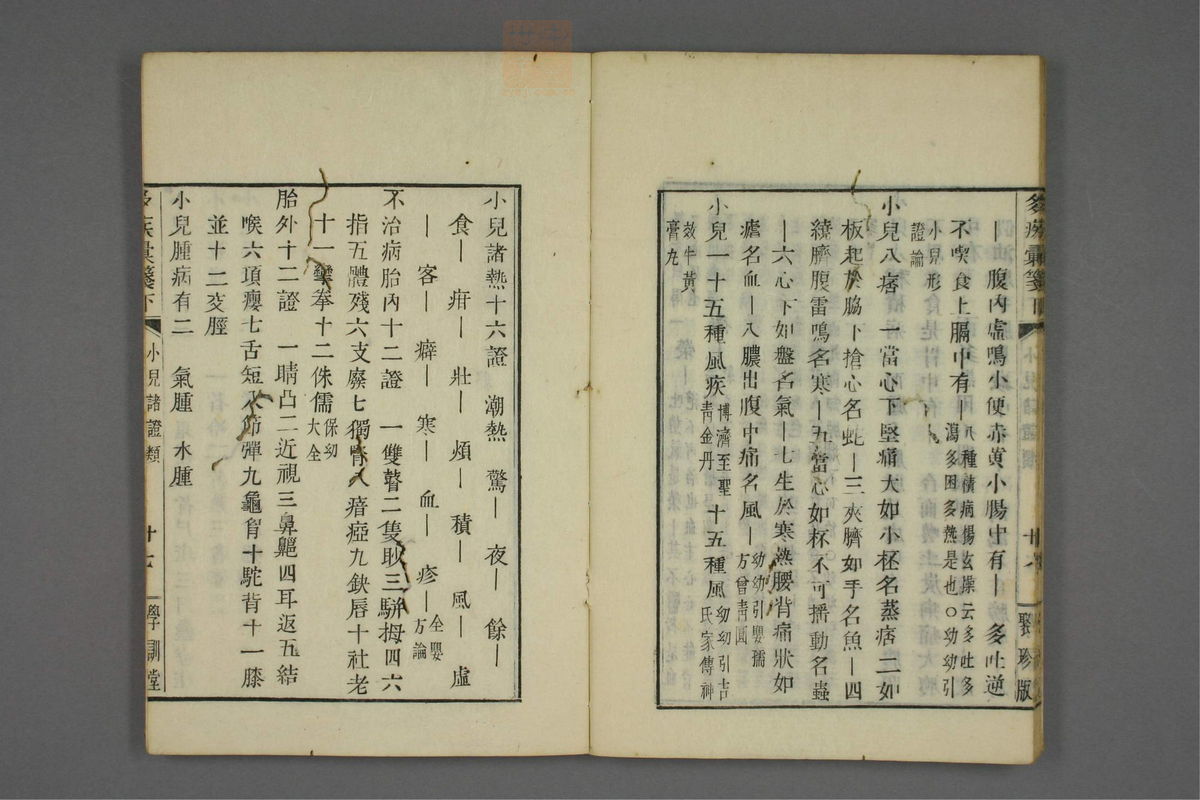 ︱腹內虛鳴小便赤黄小腸中有︱多吐逆
不喫食上膈中有︱八種積病楊玄操云多吐多
瀉多困多熱是也〇幼幼引
小兒形
證論
小兒八痞 一當心下堅痛大如小柸名蒸痞二如
板起於脇下搶心名蛇︱三夾臍如手名魚︱四
繞臍腹雷鳴名寒︱五當心如杯不可搖動名蟲
︱六心下如盤名氣︱七生於寒熱腰背痛狀如
瘧名血︱八膿出腹中痛名風︱幼幼引嬰孺
方曾靑圓
小兒一十五種風疾博濟至聖
靑金丹 十五種風幼幼引吉
氏家傳神
效牛黄
膏丸
聚珍版
小兒諸熱十六證 潮熱 驚︱ 夜︱ 餘︱
食︱ 疳︱ 壯︱ 煩︱ 積︱ 風︱ 虛
︱ 客︱ 癖︱ 寒︱ 血︱ 疹︱全嬰
方論
不治病胎內十二證 一雙瞽二隻眇三駢拇四六
指五體殘六支廢七獨腎八瘖瘂九鈌唇十社老
十一攣拳十二侏儒保幼
大全
胎外十二證 一睛凸二近視三鼻齆四耳返五結
喉六項癭七舌短八節彈九龜胷十駝背十一膝
並十二交脛
小兒腫病有二 氣腫 水腫
多疾彙箋下 小兒諸證類 廿七 學訓堂